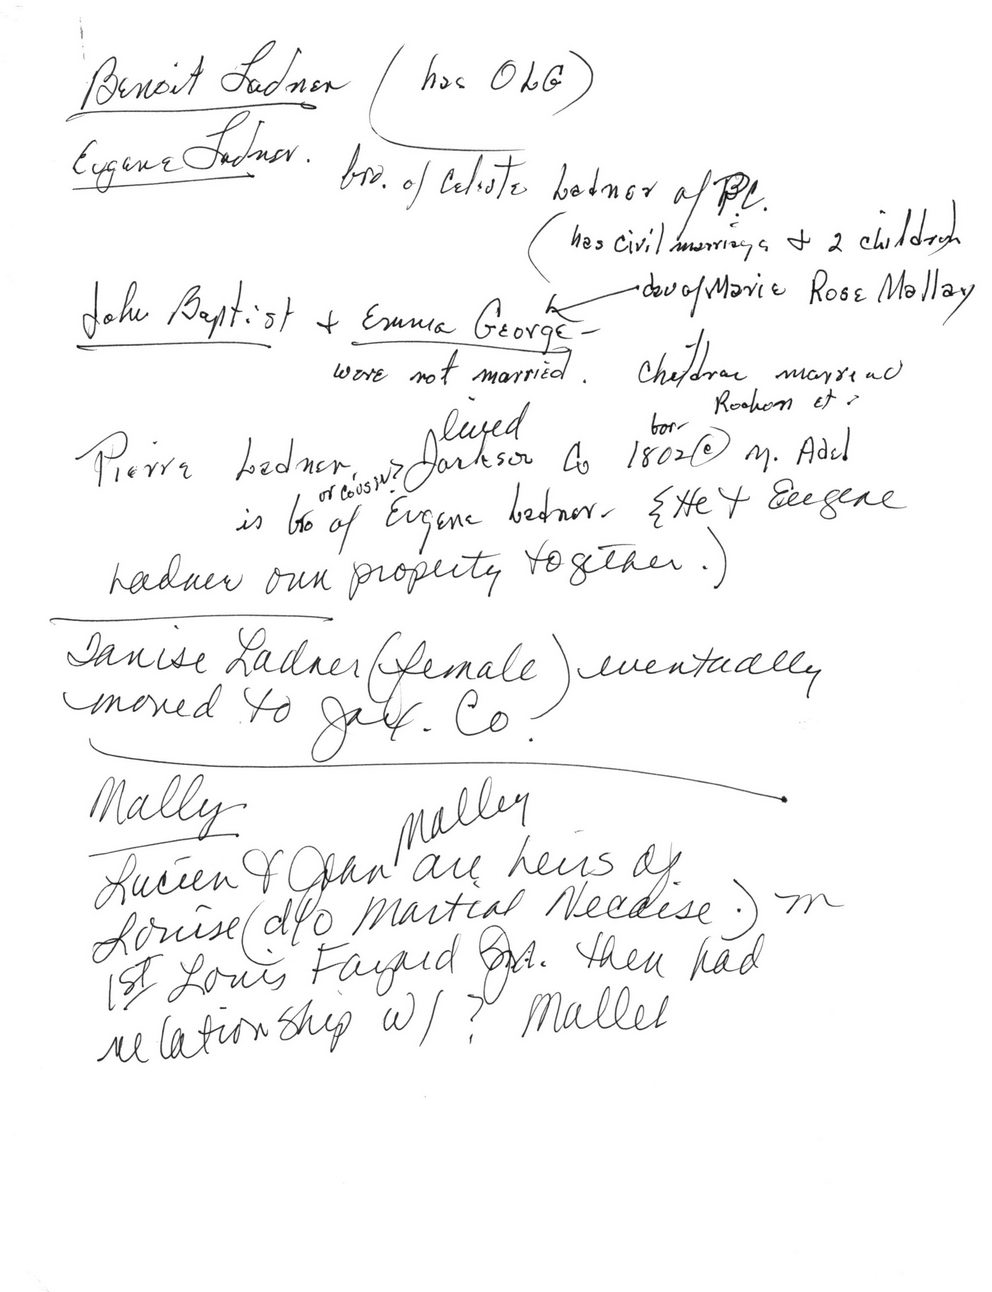 Benoit Ladner (has OLG)
Eugene Ladner.
bro. of Celeste Ladner of P.C.
(has civil marriage & 2 children
dau of Marie Rose Mallay
John Baptist & Emma George -
were not married. Children married
Rochon et ?
lived
bor
Pierre Ladner, Jackson Co 1802 @ M. Adel
or cousin?
is bro of Eugene Ladner. {He & Eugene
Ladner own property together.)
Tanise Ladner (female) eventually
moved to Jax. Co.
Mally
Malley
Lucien & Joan are heirs of
Louise (d/o Martial Necaise.) m
1st Louis Fayard Jr. then had
relationship w/ ? Mallet